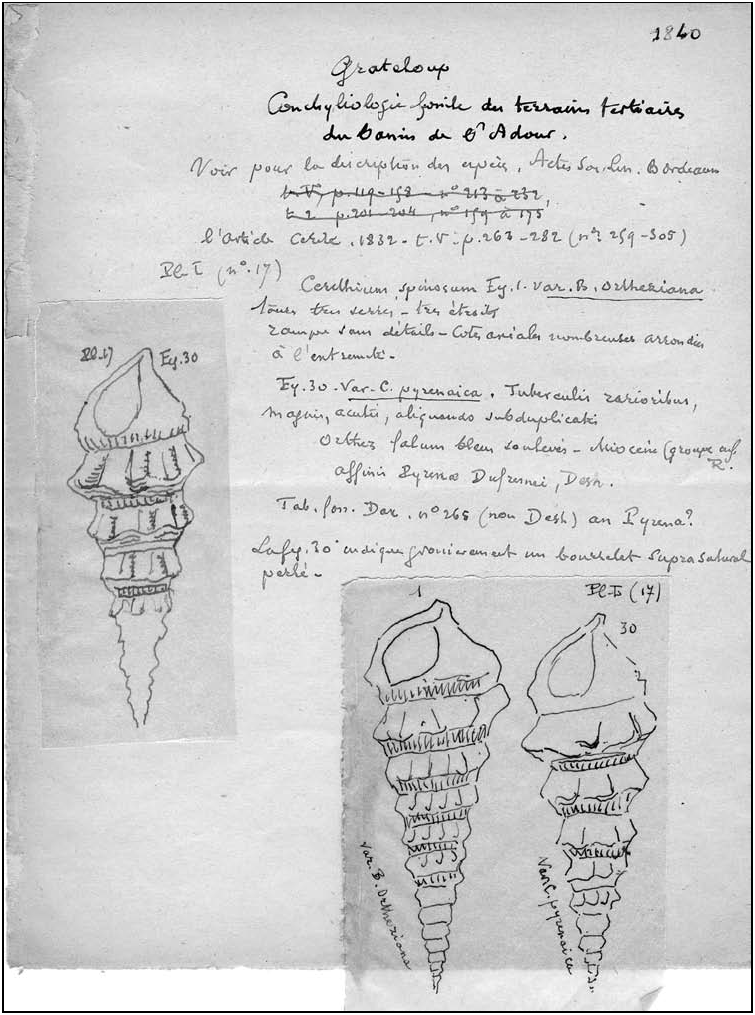 1840
Grateloup
Conchyliologie fossile des terrains tertiaires
du Bassin de l'Adour.
Voir pour la description des espèces, Actes Soc. Lin. Bordeaux
t. V, p. 119-158 - nº 213 à 232,
t. 2 p. 201-204, nº 159 à 175
l'article Cerite. 1832 - t. V - p. 263-282 (nº 259-305)
Pl. I (nº 17)
Cerithium spinosum Fg. 1. var. B. Ortheziana
tours très serrés - très étroits
rampe sans détails - Cotes axiales nombreuses arrondies
à l'extremité -
Fg. 30 - Var. C. pyrenaica. Tuberculis rarioribus,
magnis, acutis, aliquando subduplicatis
Orthez falun bleu soulevés - Miocène (groupe inf.
R.
affinis Pyrena Dufresnei, Desh.
Tab. foss. Dax. nº 265 (non Desh) an Pyrena?
La fg. 30 indique grossièrement un bourrelet suprasutural
perlé -
Pl. 17 Fg. 30
1
Pl. I (17)
30
Var. B. Ortheziana
Var C. pyrenaica